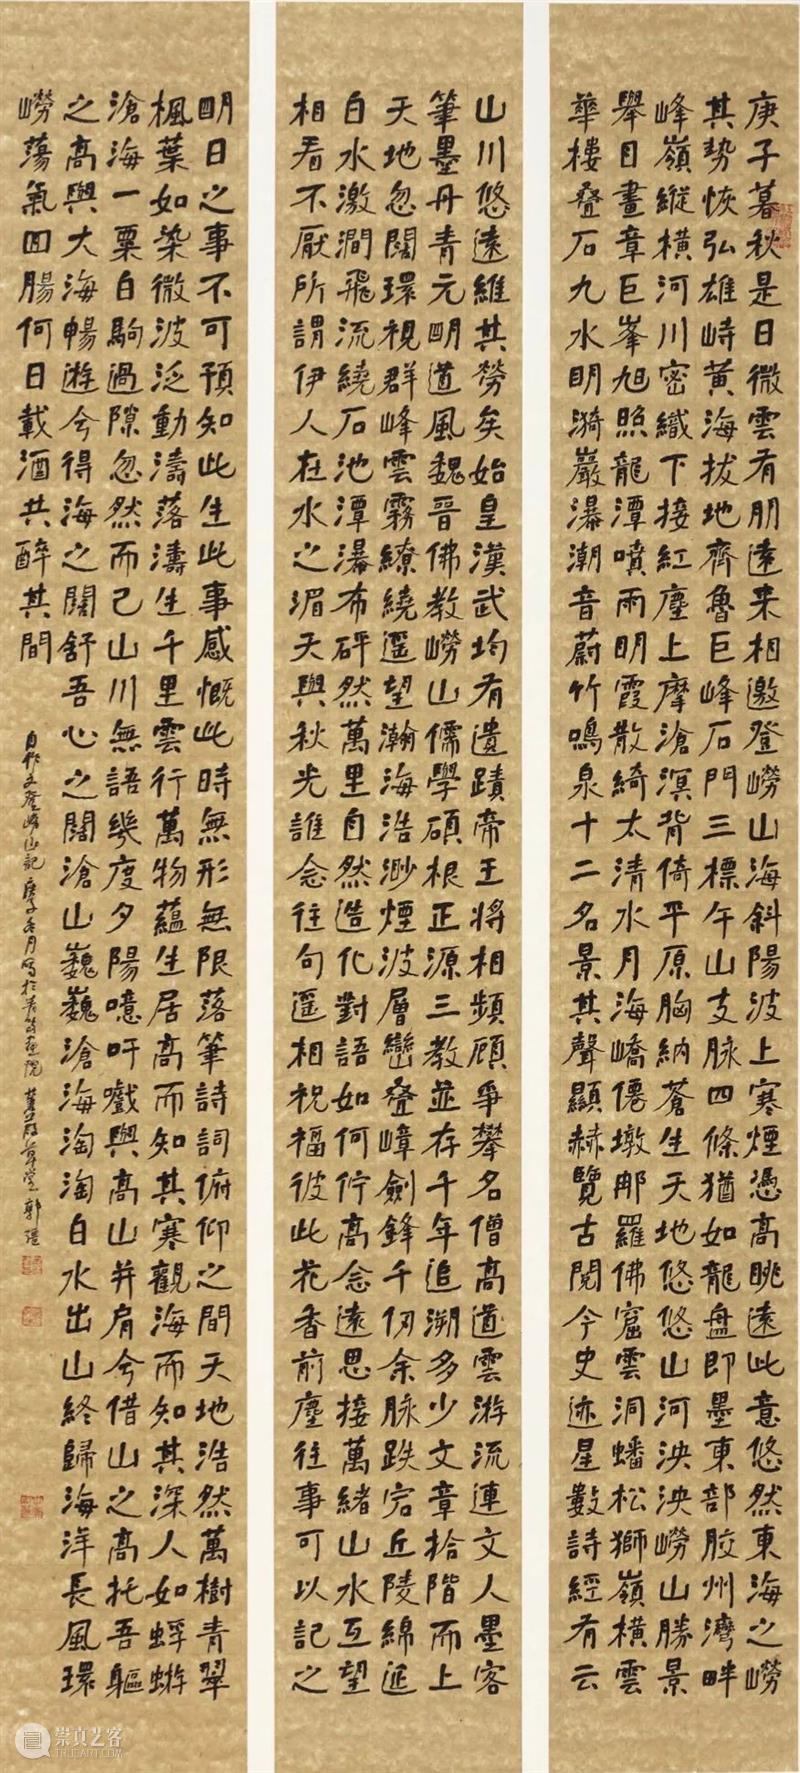 庚子暮秋是日微雲有朋遠来相邀登嶗山海斜陽波上寒煙憑高眺遠此意悠然東海之嶗
其勢恢弘雄峙黃海拔地齊魯巨峰石門三標午山支脉四條猶如龍盤即墨東部胶州灣畔
峰嶺縱横河川密織下接紅塵上摩滄溟背倚平原胸納蒼生天地悠悠山河泱泱嶗山勝景
舉目畫章巨峯旭照龍潭噴雨明霞散綺太清水月海嶠僊墩那羅佛窟雲洞蟠松獅嶺横雲
華樓疊石九水明漪巖瀑潮音蔚竹鳴泉十二名景其聲顯赫覽古閱今史迹星數詩經有云
山川悠遠維其勞矣始皇漢武均有遺蹟帝王将相頻顧爭攀名僧高道雲游流連文人墨客
筆墨丹青元明道風魏晋佛教嶗山儒學碩根正源三教並存千年追溯多少文章拾階而上
天地忽闊環視群峰雲霧繚繞遥望瀚海浩渺煙波層巒疊嶂劍鋒千仞余脉跌宕丘陵綿延
白水激澗飛流繞石池潭瀑布砰然萬里自然造化對語如何佇高念遠思接萬緒山水互望
相看不厭所謂伊人在水之湄天與秋光誰念往句遥相祝福彼此花香前塵往事可以記之
明日之事不可預知此生此事感慨此時無形無限落筆詩詞俯仰之間天地浩然萬樹青翠
楓葉如染微波泛動濤落濤生千里雲行萬物蘊生居高而知其寒觀海而知其深人如蜉蝣
滄海一粟白駒過隙忽然而已山川無語幾度夕陽噫吁戲與高山并肩今借山之高托吾軀
之高與大海暢遊今得海之闊舒吾心之闊滄山巍巍滄海淘淘白水出山終歸海洋長風環
嶗蕩氣回腸何日載酒共醉其間
自作文登嶗山記庚子冬月寫於青島畫院
郭强
崇真艺客
TRUEART.COM